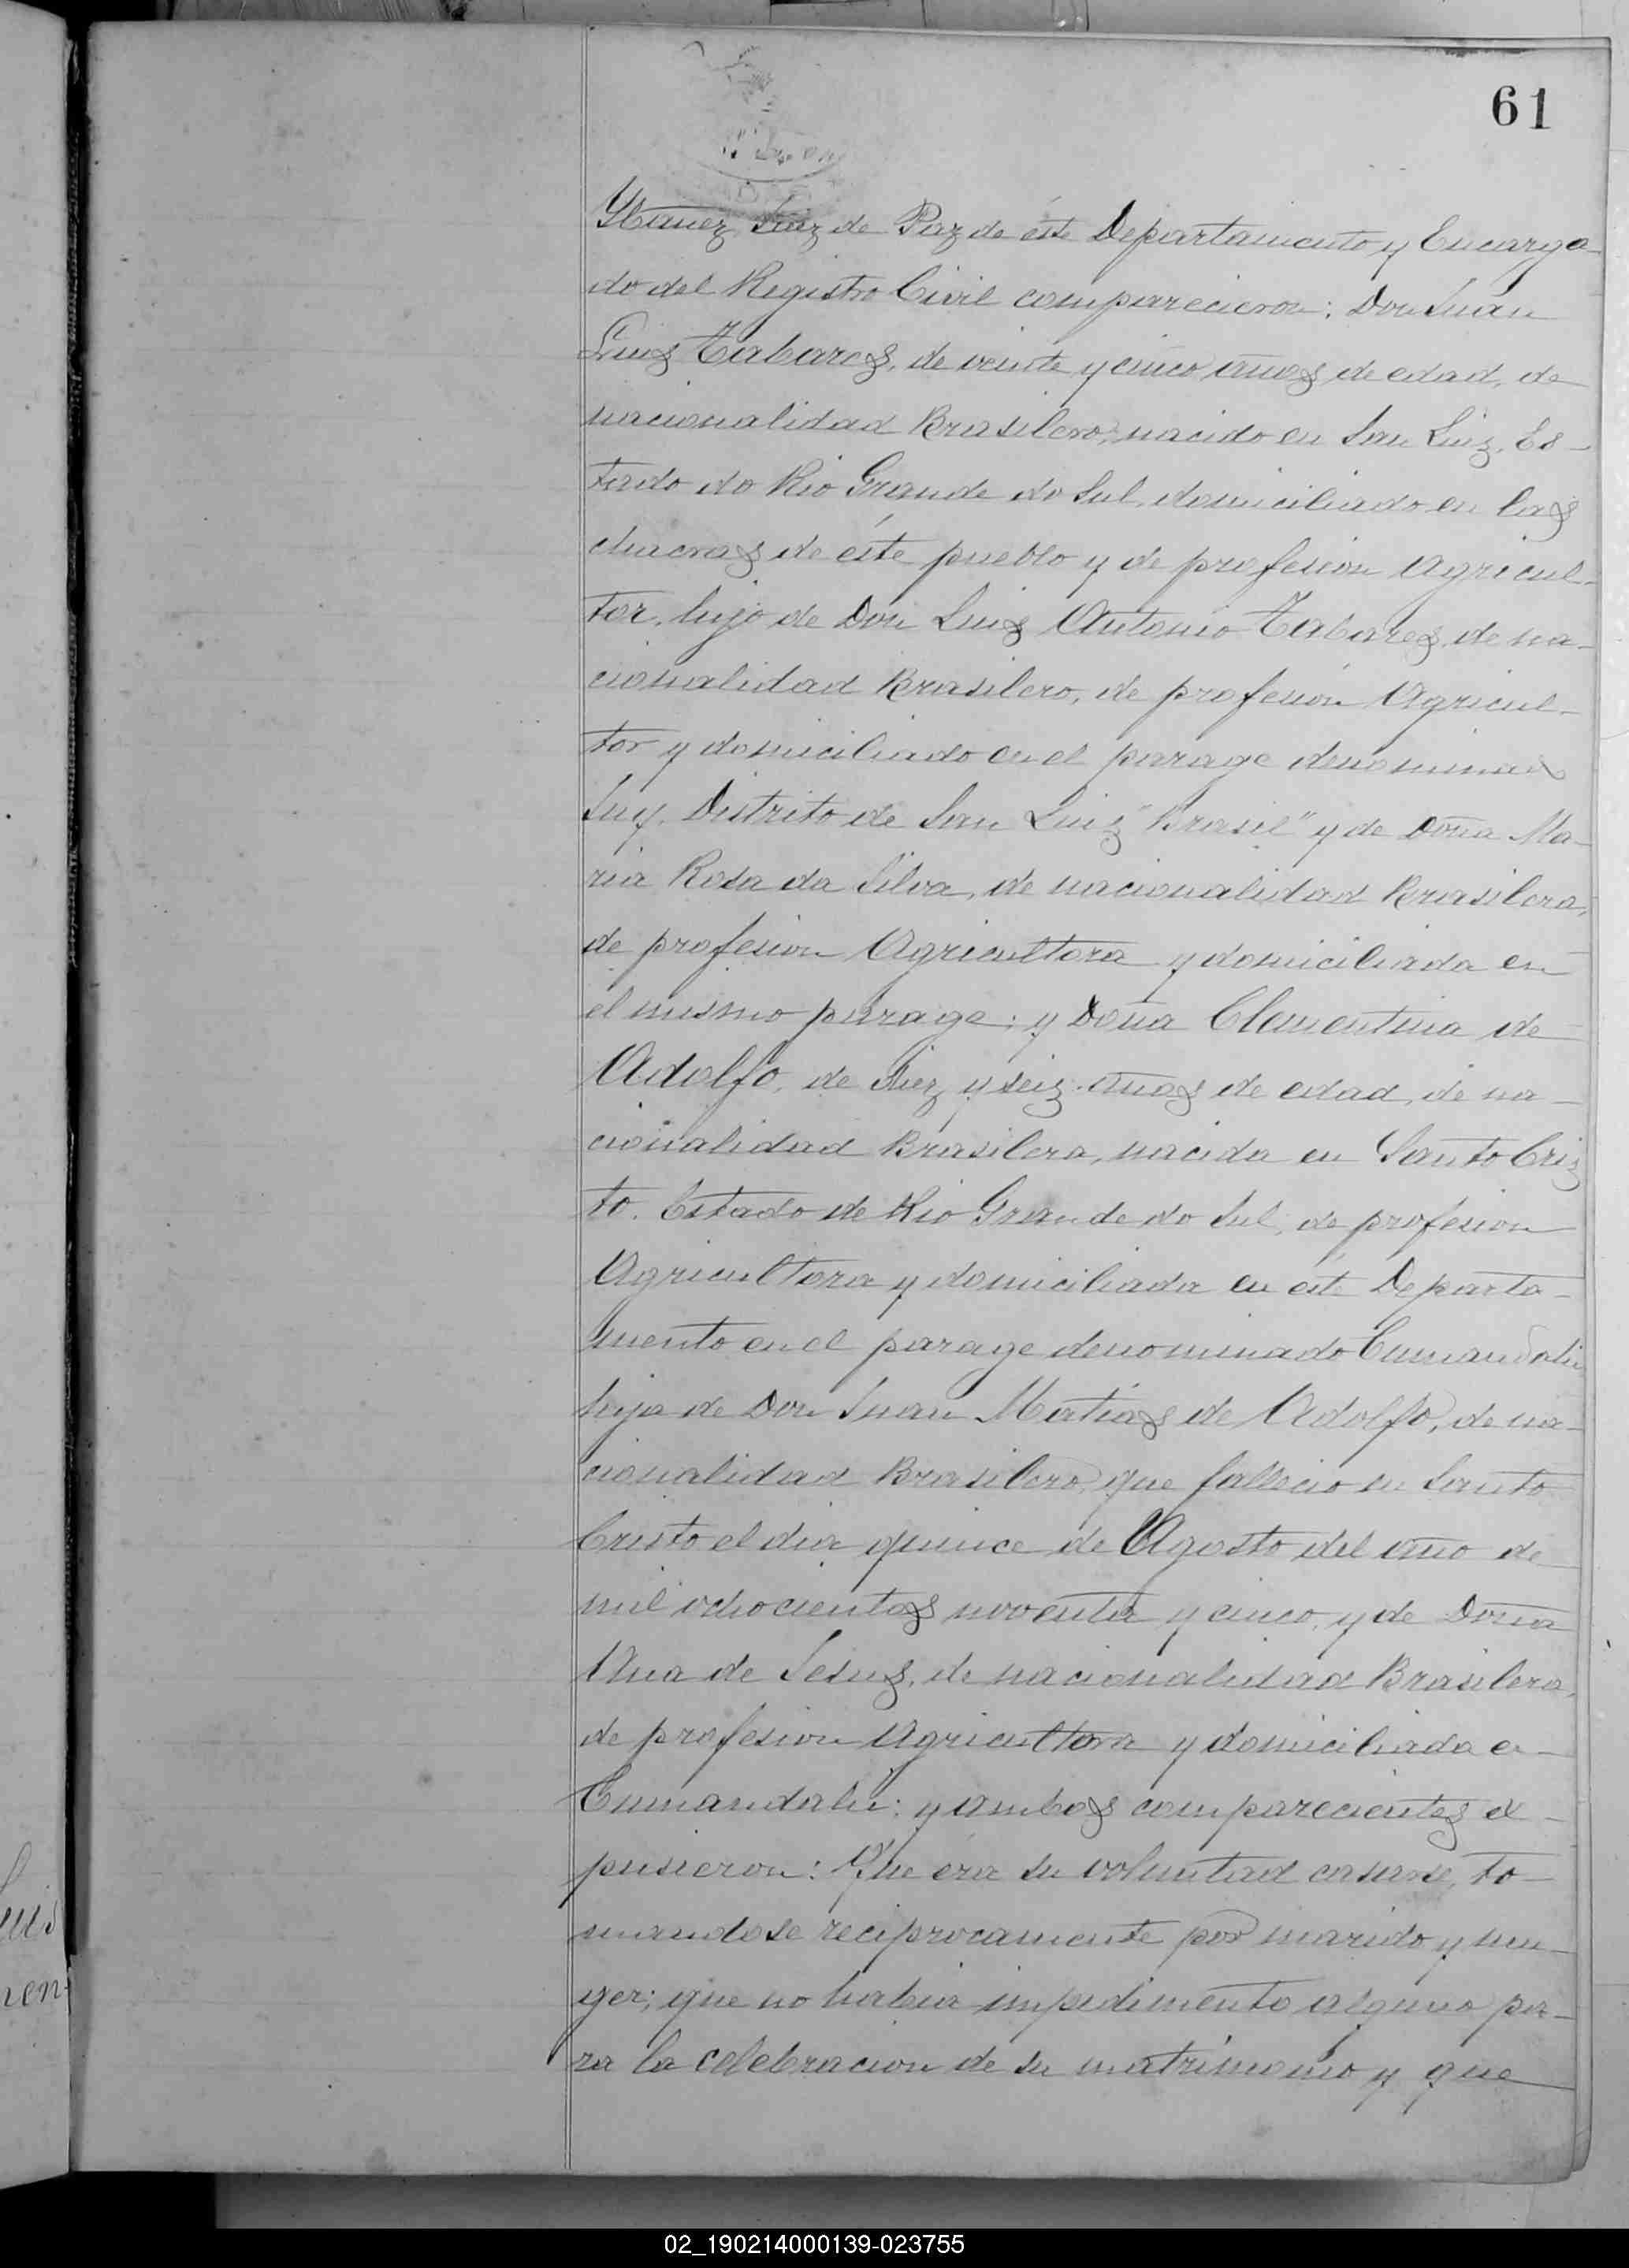 61
Ybañez, Juez de Paz de éste Departamento y Encarga-
do del Registro Civil comparecieron: Don Juan
Luis Tabares, de veinte y cinco años de edad, de
nacionalidad Brasilero, nacido en San Luiz, Es-
tado do Rio Grande do Sul, domiciliado en las
chacras de éste pueblo y de profesion Agricul-
tor, hijo de Don Luis Antonio Tabares, de na-
cionalidad Brasilero, de profesion Agricul-
tor y domiciliado en el parage denominado
Distrito de San Luiz "Brasil" y de Doña Ma-
ria Rosa da Silva, de nacionalidad Brasilera,
de profesion Agricultora y domiciliada en
el mismo parage; y Doña Clementina de
Adolfo, de diez y seiz años de edad, de na-
cionalidad Brasilera, nacida en Santo Criz
to. Estado de Rio Grande do Sul, de profesion
Agricultora y domiciliada en éste Departa-
mento en el parage denominado Cumandahi
hija de Don Juan Matias de Adolfo, de na-
cionalidad Brasilero, que falleció en Santo
Cristo el dia quince de Agosto del año de
mil ochocientos noventa y cinco, y de Doña
Ana de Jesus, de nacionalidad Brasilera,
de profesion Agricultora y domiciliada en
Cumandahi; y ambos comparecientes ex-
pusieron: Que éra su voluntad casarse, to-
mandose reciprocamente por marido y mu-
ger; que no habia impedimento alguno pa-
ra la celebracion de su matrimonio y que
02_190214000139-023755